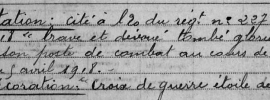 tation: cité à l'Oo du régt no 227
"brave et dévoué tombé glorieu
son poste de combat au cours de
5 avril 1918. -
coration: Croix de guerre étoile de